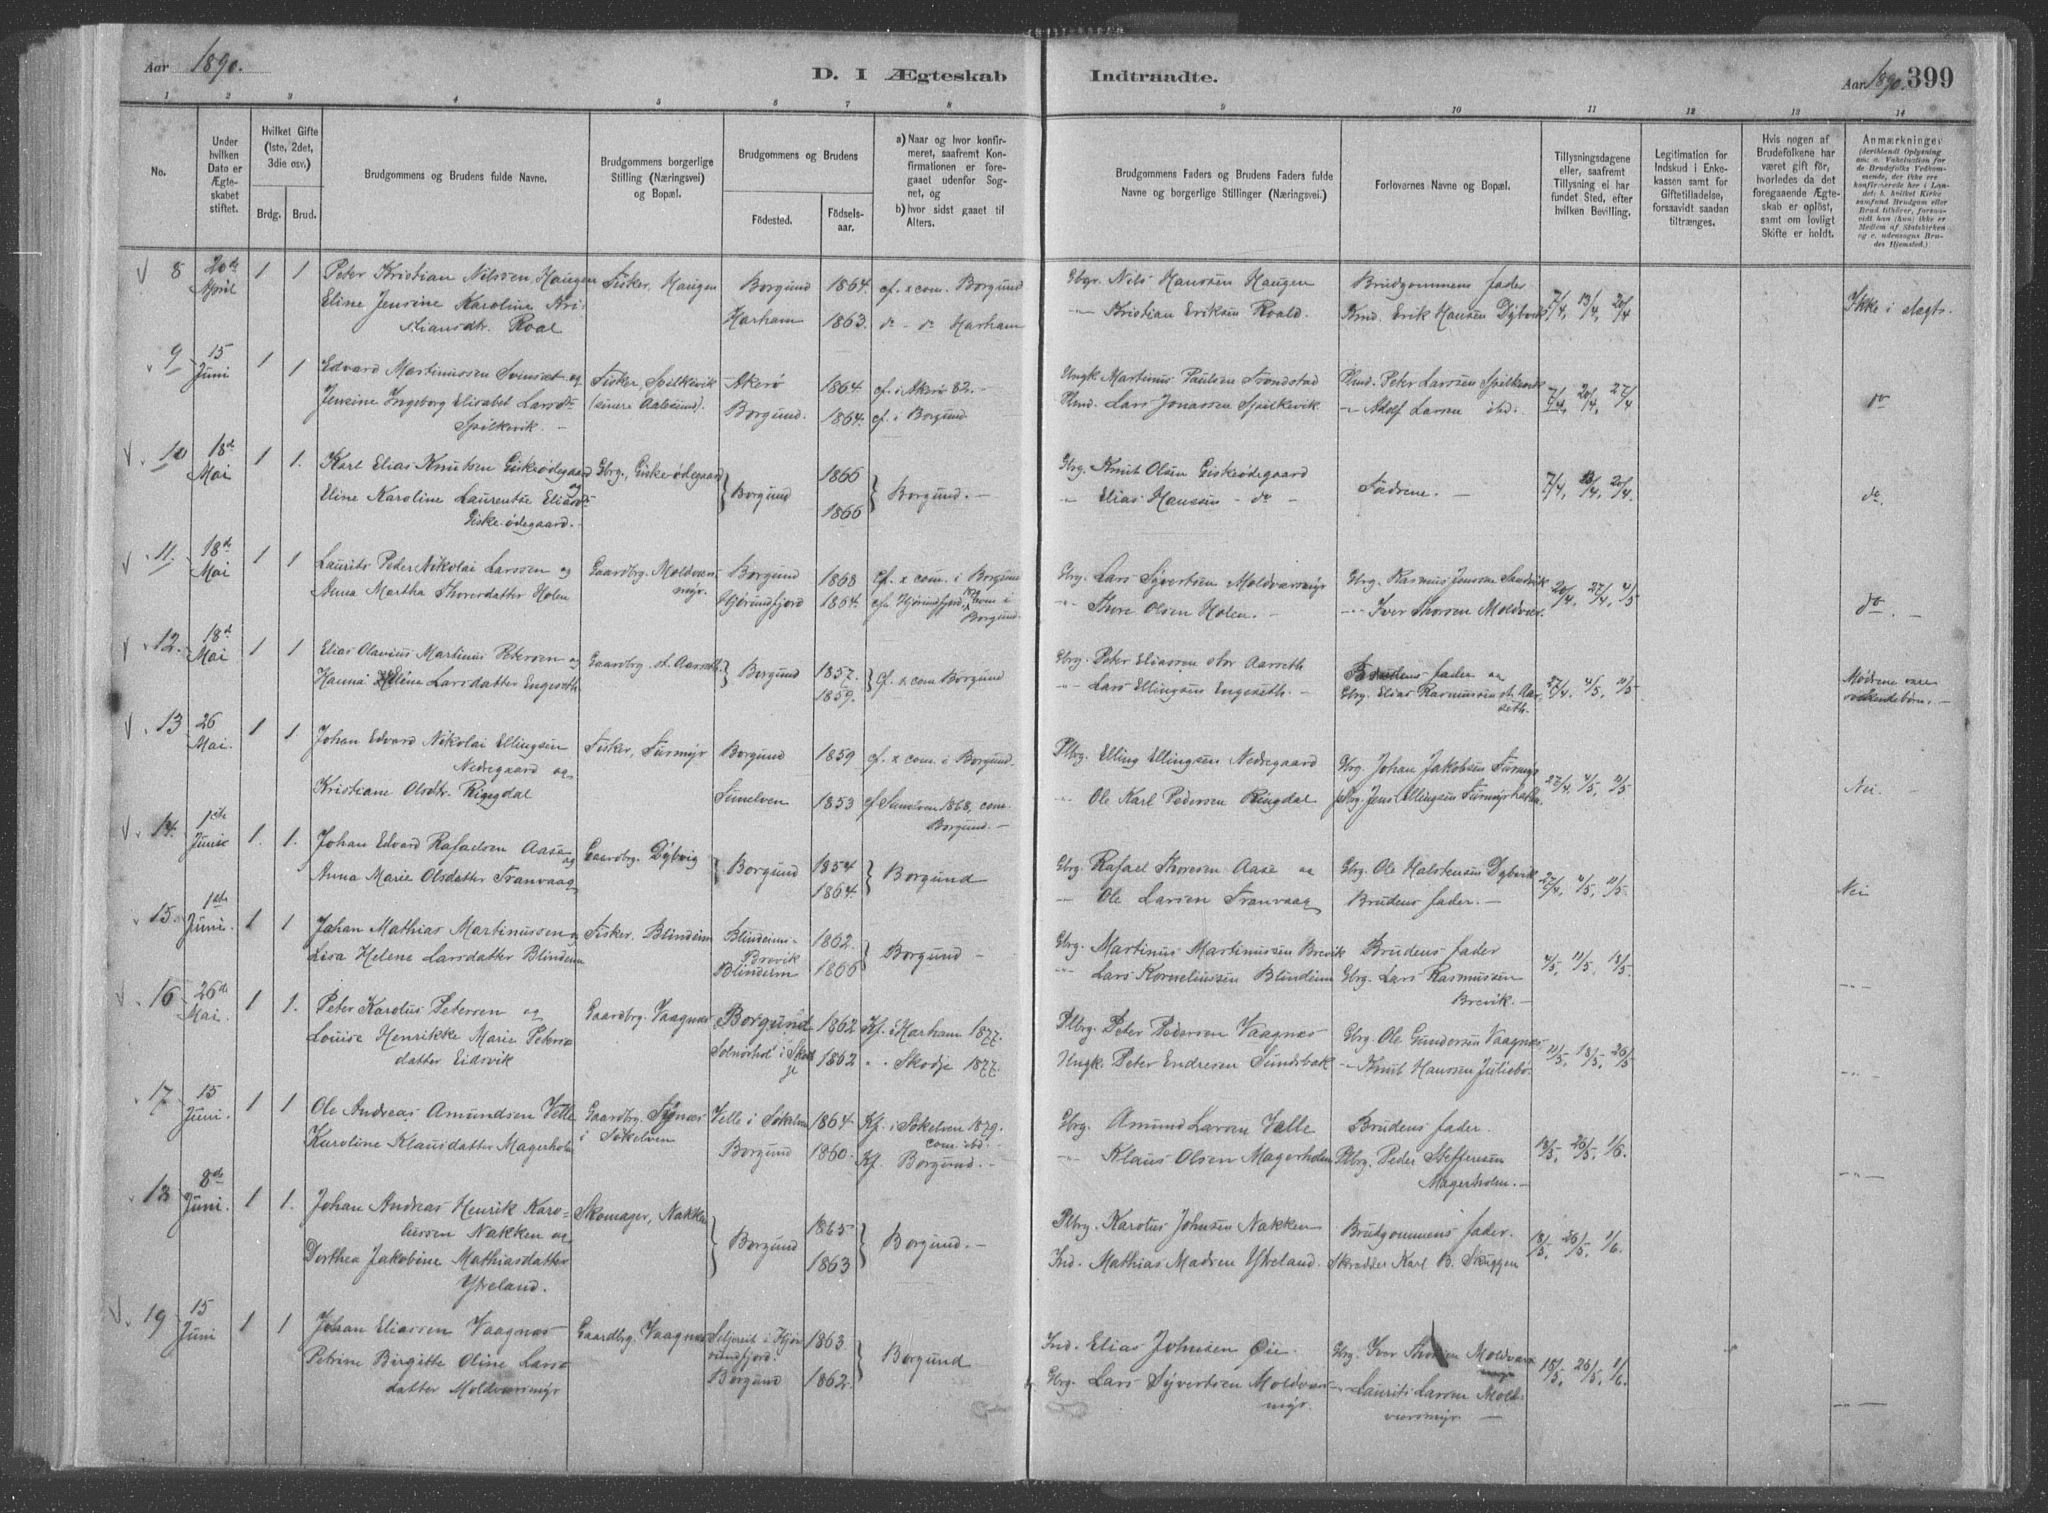 Aar 1890.
D. I Ægteskab Indtraadte.
Aar 1890. 399
1 2 3 4 5 6 7 8 9 10 11 12 13 14
No.
Under hvilken Dato er Ægteskabet stiftet.
Hvilket Gifte (1ste, 2det, 3die osv.)
Brdg. Brud.
Brudgommens og Brudens fulde Navne.
Brudgommens borgerlige Stilling (Næringsvei) og Bopæl.
Brudgommens og Brudens
Fødested. Fødselsaar.
a) Naar og hvor konfirmeret, saafremt Konfirmationen er foregaaet udenfor Sognet, og
b) hvor sidst gaaet til Alters.
Brudgommens Faders og Brudens Faders fulde Navne og borgerlige Stillinger (Næringsvei.)
Forlovernes Navne og Bopæl.
Tillysningsdagene eller, saafremt Tillysning ei har fundet Sted, efter hvilken Bevilling.
Legitimation for Indskud i Enkekassen samt for Giftetilladelse, forsaavidt saadan tiltrænges.
Hvis nogen af Brudefolkene har været gift før, hvorledes da det foregaaende Ægteskab er opløst, samt om lovligt Skifte er holdt.
Anmærkninger
8 20de April 1 1 Peter Kristian Nilssen Haugen Fisker, Haugen Borgund 1864. cf. x com. Borgund Gbgr. Nils Hanssen Haugen Brudgommens fader 7/4, 13/4, 20/4 Ikke i slægt.
Eline Jensine Karoline Kristiansdtr. Roal Harham 1863. do - do Harham " Kristian Eriksen Roald. Erik Hansen Dybvik
9 15 Juni 1 1 Edvard Martinussen Svenset og Fisker, Spilkevik (senere Aalesund). Akerø 1864. cf. i Akerø 82. Ungk. Martinus Paulsen Peter Larssen Spilkevik 7/4, 20/4, 27/4 do
Jensine Ingeborg Elisabet Larsdtr. Spilkevik. Borgund. 1864. cf. i Borgund Lars Jonassen Spilkevik " Adolf Larsen ibd.
10 18de Mai 1 1. Karl Elias Knutsen Giskeødegaard og Gbrg., Giskeødegaard Borgund 1866 Borgund. Gbrg. Knut Olsen Giskeødegaard Fædrene. 7/4, 13/4, 20/4. do.
Eline Karoline Laurentse Eliasdtr. Giskeødegaard. 1866 " Elias Hanssen do
11. 18de Mai 1 1 Laurits Peder Nikolai Larssen og Gaardbrg. Moldværsmyr. Borgund 1868 cf. x com. i Borgund Gbrg. Lars Syvertsen Moldværsmyr Gbrg. Rasmus Jensen Sandvik 20/4, 27/4, 4/5 do.
Anna Martha Thoresdatter Holen Hjørundfjord 1864. cfr. Hjørundfjord, com i Borgund. " Thore Olsen Holen. " Iver Thorsen Moldvær.
12. 18d Mai 1 1 Elias Olavius Martinus Petersen og Gaardbrg. st. Aarseth. Borgund 1857. cf. x com Borgund Gbrg. Peter Eliassen stor Aarseth Brudens fader og 27/4, 4/5, 11/5 Mødrene vare søskendebørn.
Hanna Heléne Larsdatter Engeseth 1859. " Lars Ellingsen Engeseth. Gbrg. Elias Rasmussen st. Aarseth.
13 26 Mai. 1 1 Johan Edvard Nikolai Ellingsen Nedregaard og Fisker, Furmyr Borgund 1859 cf. x com. i Borgund. Plbrg. Elling Ellingsen Nedregaard Gbrg. Johan Jakobsen Furmyr 27/4, 4/5, 11/5 Nei
Kristiane Olsdtr. Ringdal Sunelven 1853 cf Sunelven 1868, com. Borgund. " Ole Karl Pedersen Ringdal Jens Ellingsen
14. 1ste Juni 1. 1. Johan Edvard Rafaelsen Aase og Gaardbrg. Dybvig Borgund 1854 Borgund Gbrg. Rafael Thoresen Aase og Gbrg. Ole Halstensen Dybvik 27/4, 4/5, 11/5. Nei
Anna Marie Olsdatter Tranvaag 1864. " Ole Larsen Tranvaag Brudens fader.
15. 1ste Juni. 1 1 Johan Mathias Martinussen og Fisker, Blindeim Blindeims-Brevik 1862. Borgund Gbrg. Martinus Martinussen Brevik Brudens fader 4/5, 11/5, 18/5
Lisa Helene Larsdatter Blindeim Blindeim 1866 " Lars Korneliussen Blindeim Gbrg. Lars Rasmussen Brevik.
16 26de Mai. 1 1. Peter Karolus Petersen og Gaardbrg. Vaagnæs Borgund 1862 Kf. i Harham 1877. Plbrg. Peter Pedersen Vaagnæs Gbrg. Ole Gundersen Vaagnæs 11/5, 18/5, 26/5
Louise Henrikke Marie Petersdatter Eidsvik Solnørhol i Skodje 1862 " Skodje 1877. Ungk. Peter Endresen Sundsbak " Knut Hanssen Juliebø.
17 15 Juni. 1 1 Ole Andreas Amundsen Velle Gaardbrg. Synæs i Søkelven Velle i Søkelven 1864 Kf. i Søkelven 1879. com. ibd. Gbrg. Amund Larsen Velle Brudens fader. 18/5, 26/5, 1/6.
Karoline Klausdatter Magerholm Borgund 1860. Kf. Borgund. " Klaus Olsen Magerholm Plbrg. Peder Steffensen Magerholm.
18 8de Juni. 1 1. Johan Andreas Henrik Karolussen Nakken og Skomager, Nakken Borgund 1865 Borgund. Plbrg. Karolus Johnsen Nakken Brudgommens fader. 18/5, 26/5, 1/6.
Dorthea Jakobine Mathiasdatter Ysteland. 1863 Ind. Mathias Madsen Ystreland. Skrædder Karl B. Skuggen
19 15 Juni 1 1 Johan Eliassen Vaagnæs Gaardbrg. Vaagnæs i Hjørundfjord. 1863 Borgund Ind. Elias Johnsen Øie. Gbrg. Iver Thorsen Moldværsmyr 18/5, 26/5, 1/6.
Petrine Birgitte Oline Larsdatter Moldværsmyr Borgund 1862. Gbrg. Lars Syvertsen Moldværsmyr. " Laurits Larsen Moldværsmyr.